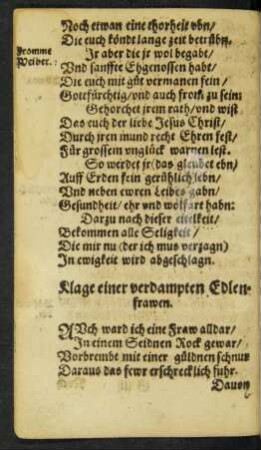 Noch etwan eine thorheit vbn/
Die euch köndt lange zeit betrübn.
Fromme
Weiber.
Jr aber die jr wol begabt/
Vnd sanffte Ehgenossen habt/
Die euch mit güt vermanen fein/
Gottfürchtig/ vnd auch from zu sein:
Gehorchet jrem rath/ vnd wist
Das euch der liebe Jesus Christ/
Durch jren mund recht Ehren fest/
Für grossem vnglück warnen lest.
So werdet jr (das gleubet ebn/
Auff Erden fein gerühlich lebn/
Vnd neben ewren Leibes gabn/
Gesundheit/ ehr vnd wolfart habn:
Darzu nach dieser eitelkeit/
Bekommen alle Seligkeit/
Die mir nu (der ich mus verzagn)
In ewigkeit wird abgeschlagn.
Klage einer verdampten Edlen-
frawen.
AVch ward ich eine Fraw alldar/
In einem Seidnen Rock gewar/
Vorbrembt mit einer güldnen schnur
Daraus das fewr erschrecklich fuhr.
Dauon